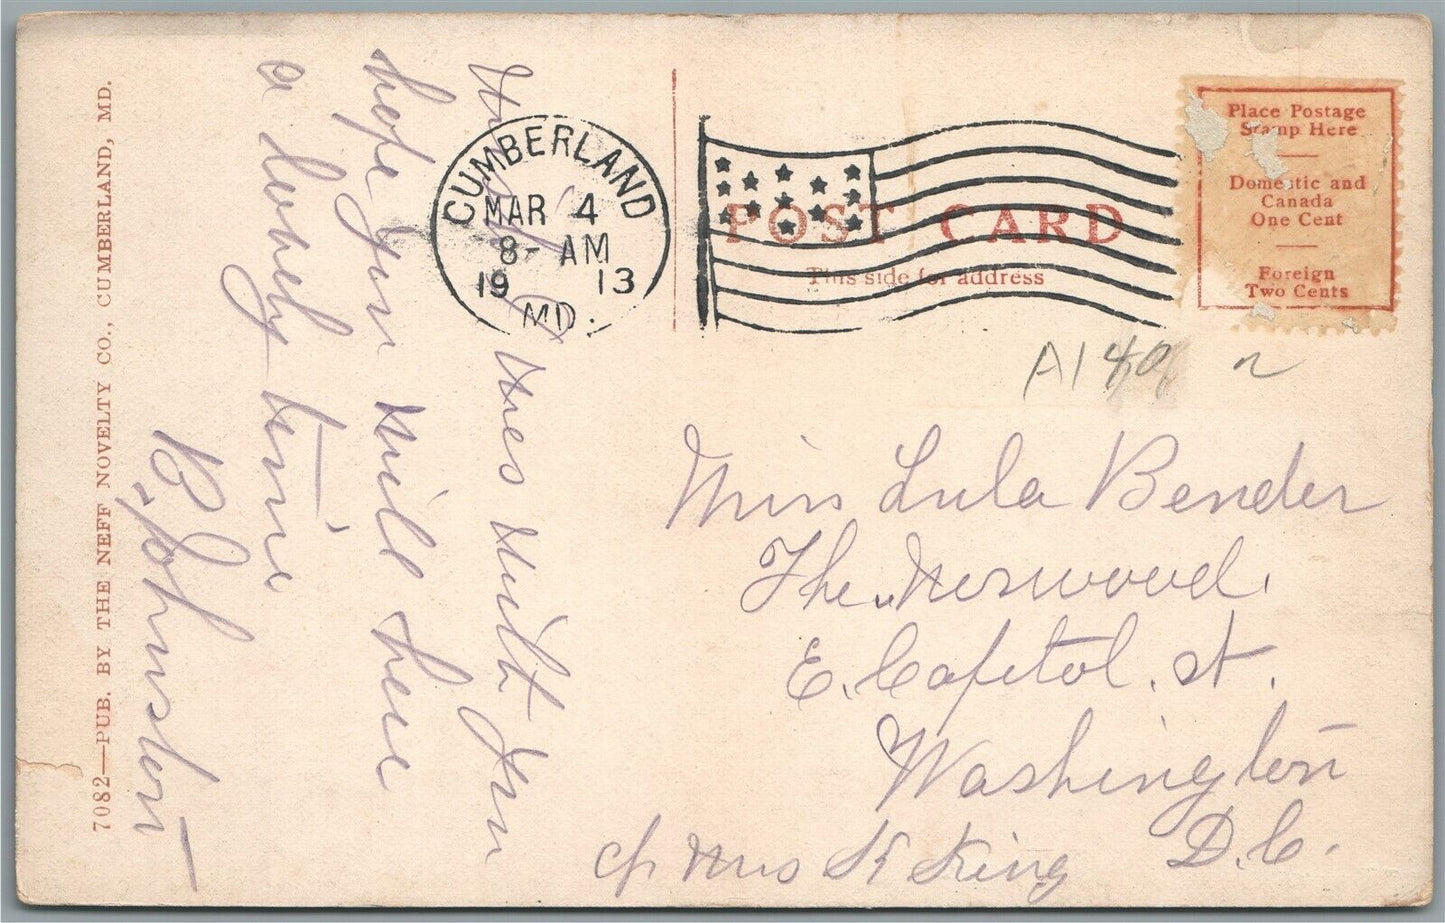 7082—PUB. BY THE NEFF NOVELTY CO., CUMBERLAND, MD.
CUMBERLAND
MAR 4
8- AM
19 13
MD.
POST CARD
This side for address
Place Postage
Stamp Here
Domestic and
Canada
One Cent
Foreign
Two Cents
A149
Miss Lula Bender
The Norwood.
E. Capitol. St.
Washington
D.C.
c/o Mrs K King
was with you
hope you will have
a lovely time
B. Johnston